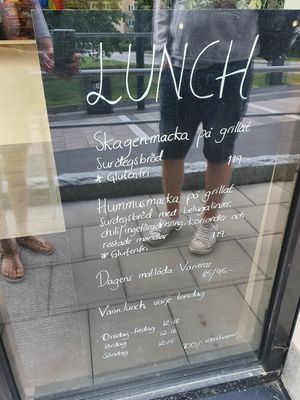 LUNCH
Skagenmacka på grillat
Surdegsbröd 119:-
* Glutenfri
Hummusmacka på grillat
Surdegsbröd med belugalinser,
chili/ingefärsdressing, koriander och
rostade mandlar 119:-
* Glutenfri
Dagens matlåda Varierar
85/95:-
Varm lunch varje torsdag
Onsdag-fredag 12-18
lördag 12-16
Söndag 12-15